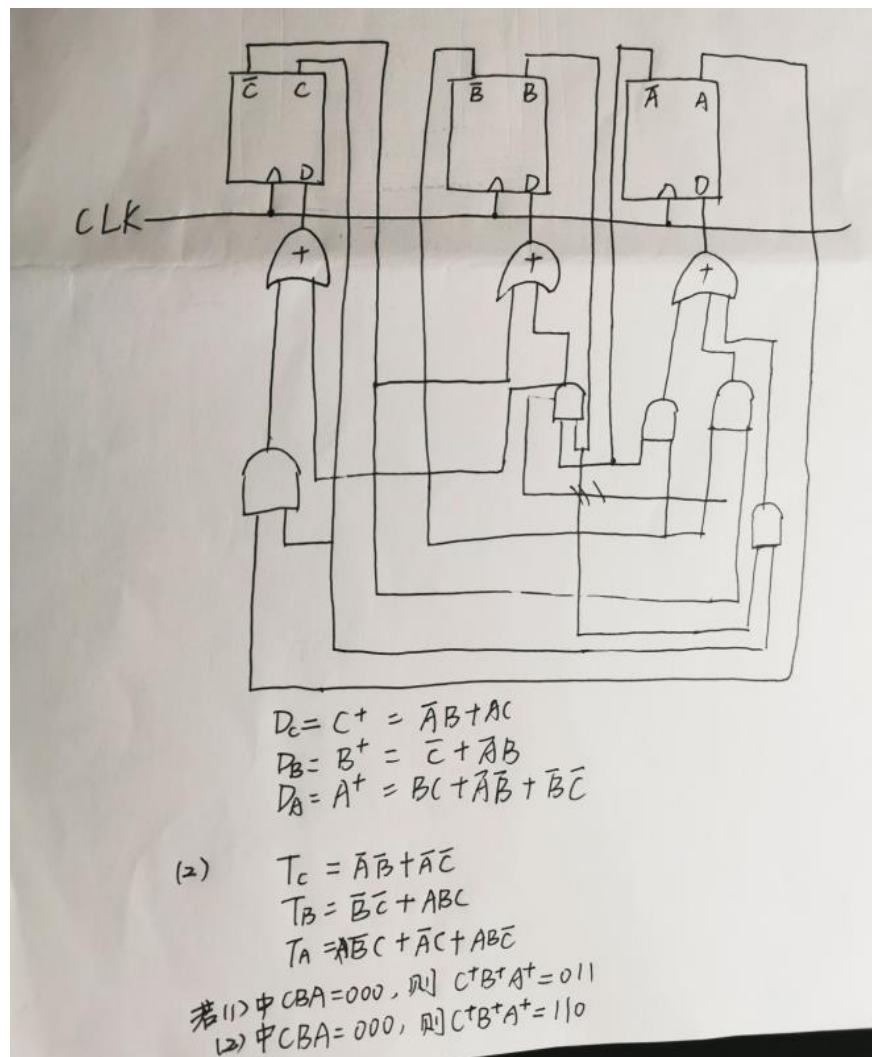 C̅ C
B̅ B
A̅ A
D
D
D
CLK
+
+
+
D_C = C⁺ = A̅B + AC
D_B = B⁺ = C̅ + A̅B
D_A = A⁺ = BC + A̅B̅ + B̅C̅
(2) T_C = A̅B̅ + A̅C̅
T_B = B̅C̅ + ABC
T_A = AB̅C + A̅C + ABC̅
若(1)中CBA=000,则 C⁺B⁺A⁺=011
(2)中CBA=000,则C⁺B⁺A⁺=110